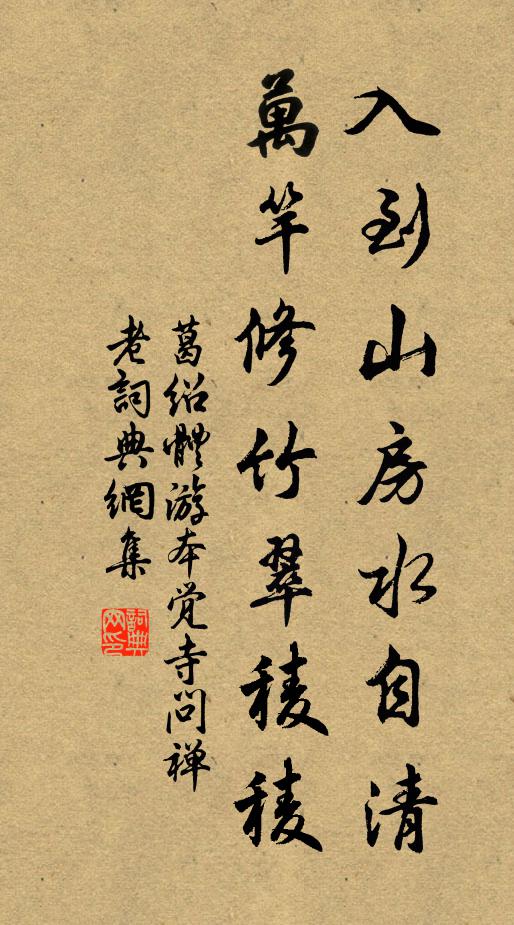 入到山房水自清
萬竿修竹翠稜稜
葛绍體游本觉寺問禅
老詞典網集
詞典网印